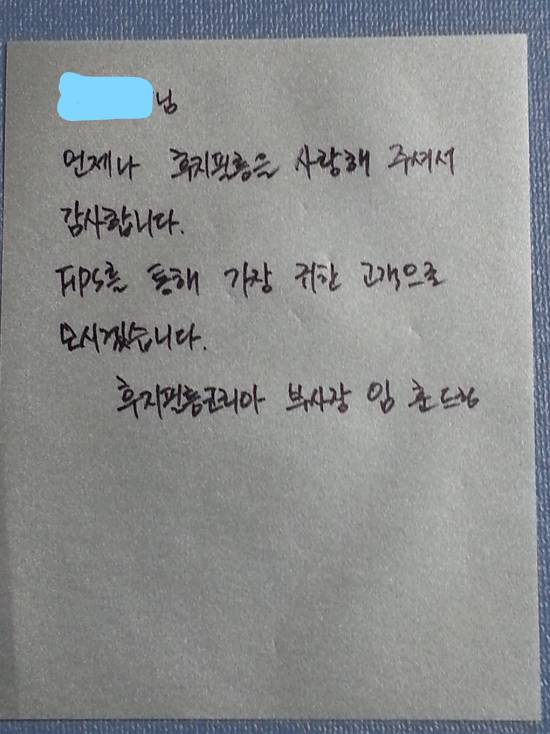 님
언제나 후지필름을 사랑해 주셔서
감사합니다.
FPS를 통해 가장 귀한 고객으로
모시겠습니다.
후지필름코리아 부사장 임 훈 드림